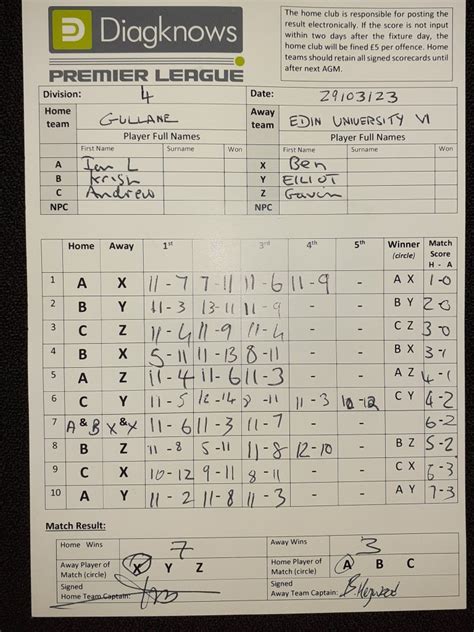 Diagknows
PREMIER LEAGUE
The home club is responsible for posting the
result electronically. If the score is not input
within two days after the fixture day, the
home club will be fined £5 per offence. Home
teams should retain all signed scorecards until
after next AGM.
Division: 4 Date: 29/03/23
Home team GULLANE Away team EDIN UNIVERSITY VI
Player Full Names Player Full Names
First Name Surname Won First Name Surname Won
A Ian L X Ben
B Krish Y ElliOT
C Andrew Z Gavin
NPC NPC
Home Away 1st 3rd 4th 5th Winner (circle) Match Score H - A
1 A X 11 - 7 7-11 11-6 11-9 - A X 1-0
2 B Y 11-3 13-11 11-9 - - B Y 2-0
3 C Z 11-4 11-9 11-4 - - C Z 3-0
4 B X 5-11 11-13 8-11 - - B X 3-1
5 A Z 11-4 11-6 11-3 - - A Z 4-1
6 C Y 11-5 12-14 -11 11-3 10-12 C Y 4-2
7 A&B X&Y 11-6 11-3 11-7 - - 6-2
8 B Z 11-8 5-11 11-8 12-10 - B Z 5-2
9 C X 10-12 9-11 8-11 - - C X 6-3
10 A Y 11-2 11-8 11-3 - - A Y 7-3
Match Result:
Home Wins 7 Away Wins 3
Away Player of Match (circle) X Y Z Home Player of Match (circle) A B C
Signed Home Team Captain: Signed Away Team Captain: